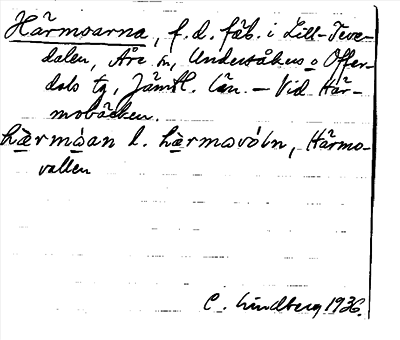 Härmoarna, f. d. fäb. i Lill-Teve-
dalen, Åre sn, Undersåkers o Offer-
dals tg, Jämtl. län. — Vid Här-
mobäcken.
hærmåan l. hærmovóln, Härmo-
vallen
C. Lindberg 1936.